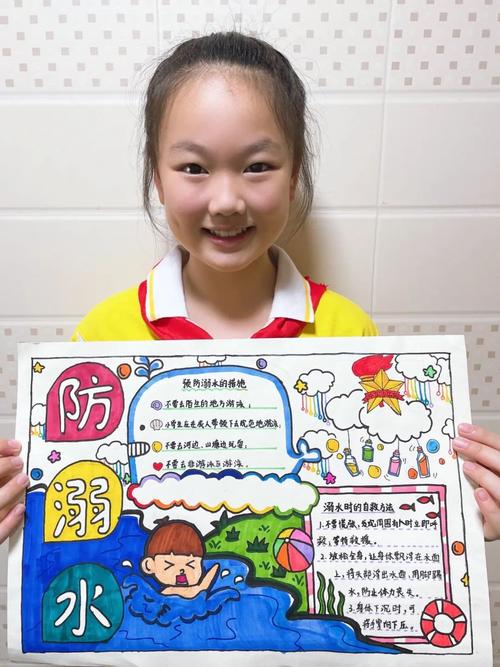 防
溺
水
预防溺水的措施
不要去陌生的地方游泳;
小学生应在大人带领下去就近地游泳;
不要去河边、山塘边玩耍;
不要去非游泳区游泳。
溺水时的自救方法
1.不要慌张,发现周围有人时立即呼
救,等待救援。
2.放松全身,让身体飘浮在水面
上,将头部浮出水面,用脚踢
水,防止体力丧失。
3.身体下沉时,可
将手掌向下压。